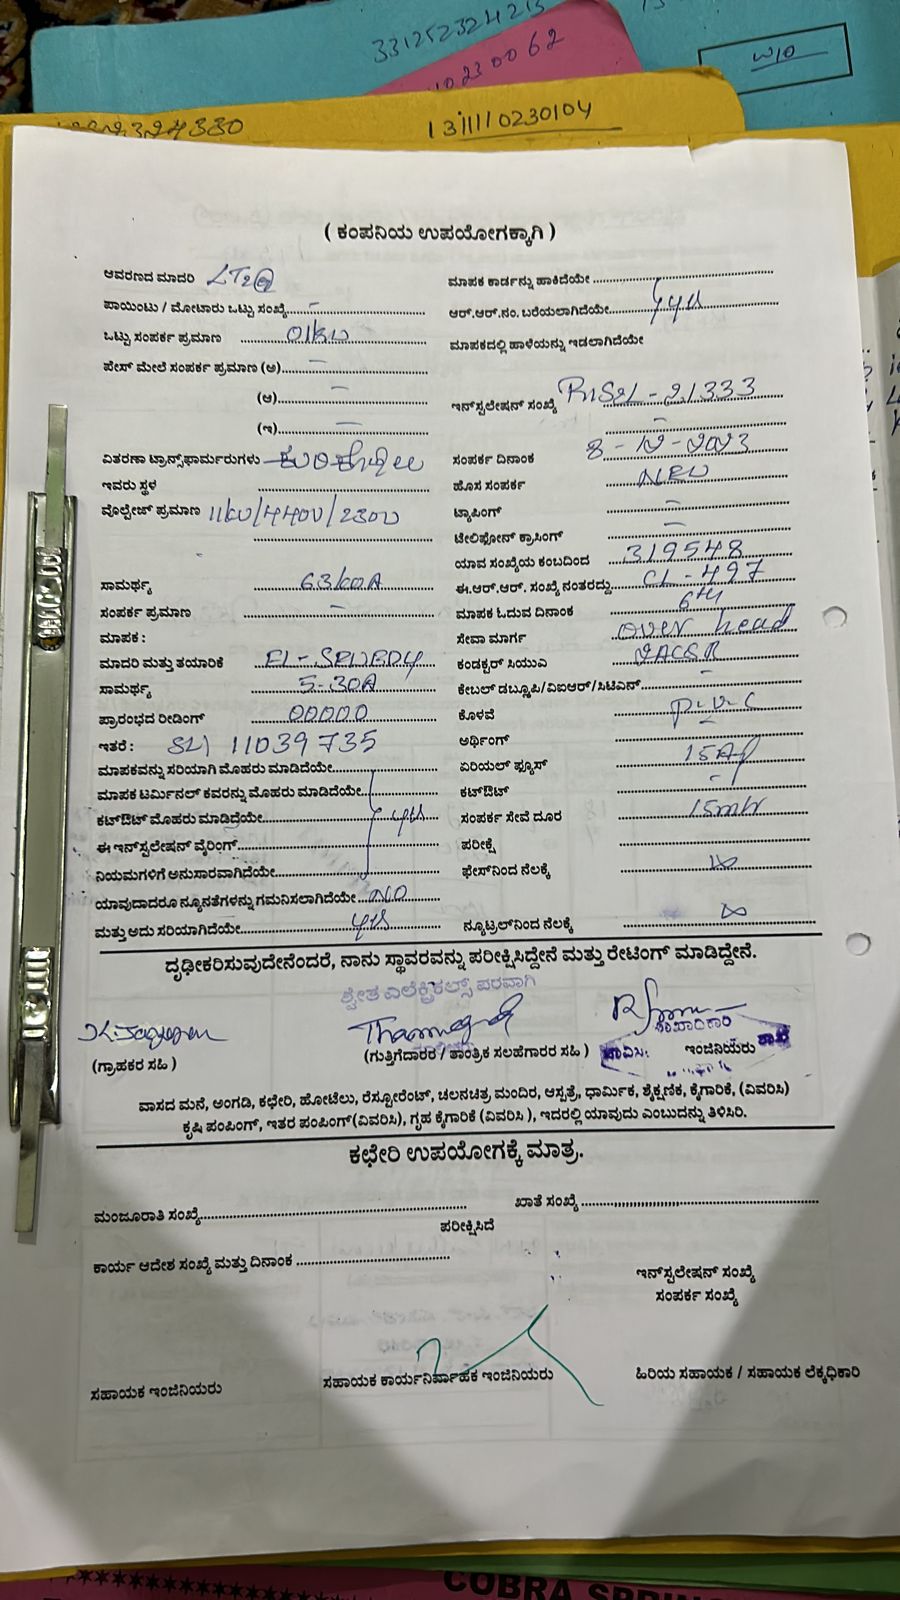 331252324215
10230062
W10
324330
1311110230104
( ಕಂಪನಿಯ ಉಪಯೋಗಕ್ಕಾಗಿ )
ಆವರಣದ ಮಾದರಿ LT2
ಮಾಪಕ ಕಾರ್ಡನ್ನು ಹಾಕಿದೆಯೇ
ಪಾಯಿಂಟು / ಮೋಟಾರು ಒಟ್ಟು ಸಂಖ್ಯೆ -
ಆರ್.ಆರ್.ನಂ. ಬರೆಯಲಾಗಿದೆಯೇ
ಒಟ್ಟು ಸಂಪರ್ಕ ಪ್ರಮಾಣ 01KW
ಮಾಪಕದಲ್ಲಿ ಹಾಳೆಯನ್ನು ಇಡಲಾಗಿದೆಯೇ
ಫೇಸ್ ಮೇಲೆ ಸಂಪರ್ಕ ಪ್ರಮಾಣ (ಅ) -
(ಆ) -
ಇನ್‌ಸ್ಟಲೇಷನ್ ಸಂಖ್ಯೆ 21333
(ಇ) -
-
ವಿತರಣಾ ಟ್ರಾನ್ಸ್‌ಫಾರ್ಮರುಗಳು
ಸಂಪರ್ಕ ದಿನಾಂಕ 8-12-2023
ಇವರು ಸ್ಥಳ
ಹೊಸ ಸಂಪರ್ಕ NEW
ವೊಲ್ಟೇಜ್ ಪ್ರಮಾಣ 11kv/440v/230v
ಟ್ಯಾಪಿಂಗ್ -
ಟೇಲಿಫೋನ್ ಕ್ರಾಸಿಂಗ್ -
ಯಾವ ಸಂಖ್ಯೆಯ ಕಂಬದಿಂದ 319548
ಸಾಮರ್ಥ್ಯ 63KVA
ಈ.ಆರ್.ಆರ್. ಸಂಖ್ಯೆ ನಂತರದ್ದು CL-497
ಸಂಪರ್ಕ ಪ್ರಮಾಣ -
ಮಾಪಕ ಓದುವ ದಿನಾಂಕ 6th
ಮಾಪಕ :
ಸೇವಾ ಮಾರ್ಗ over head
ಮಾದರಿ ಮತ್ತು ತಯಾರಿಕೆ EL-
ಕಂಡಕ್ಟರ್ ಸಿಯುಎ
ಸಾಮರ್ಥ್ಯ 5-30A
ಕೇಬಲ್ ಡಬ್ಲೂಪಿ/ವಿಐಆರ್/ಸಿಟಿಎನ್ -
ಪ್ರಾರಂಭದ ರೀಡಿಂಗ್ 00000
ಕೊಳವೆ P.V.C
ಇತರೆ : SL) 11039735
ಅರ್ಥಿಂಗ್ -
ಮಾಪಕವನ್ನು ಸರಿಯಾಗಿ ಮೊಹರು ಮಾಡಿದೆಯೇ
ಏರಿಯಲ್ ಫ್ಯೂಸ್ 15Af
ಮಾಪಕ ಟರ್ಮಿನಲ್ ಕವರನ್ನು ಮೊಹರು ಮಾಡಿದೆಯೇ
ಕಟ್‌ಔಟ್ -
ಕಟ್‌ಔಟ್ ಮೊಹರು ಮಾಡಿದ್ರೆಯೇ
ಸಂಪರ್ಕ ಸೇವೆ ದೂರ 15mtr
ಈ ಇನ್‌ಸ್ಟಲೇಷನ್ ವೈರಿಂಗ್
ಪರೀಕ್ಷೆ
ನಿಯಮಗಳಿಗೆ ಅನುಸಾರವಾಗಿದೆಯೇ
ಫೇಸ್‌ನಿಂದ ನೆಲಕ್ಕೆ ∞
ಯಾವುದಾದರೂ ನ್ಯೂನತೆಗಳನ್ನು ಗಮನಿಸಲಾಗಿದೆಯೇ NO
ಮತ್ತು ಅದು ಸರಿಯಾಗಿದೆಯೇ
ನ್ಯೂಟ್ರಲ್‌ನಿಂದ ನೆಲಕ್ಕೆ ∞
ದೃಢೀಕರಿಸುವುದೇನೆಂದರೆ, ನಾನು ಸ್ಥಾವರವನ್ನು ಪರೀಕ್ಷಿಸಿದ್ದೇನೆ ಮತ್ತು ರೇಟಿಂಗ್ ಮಾಡಿದ್ದೇನೆ.
ಶ್ವೇತ ಎಲೆಕ್ಟ್ರಿಕಲ್ಸ್ ಪರವಾಗಿ
(ಗ್ರಾಹಕರ ಸಹಿ )
(ಗುತ್ತಿಗೆದಾರರ / ತಾಂತ್ರಿಕ ಸಲಹೆಗಾರರ ಸಹಿ )
ಇಂಜಿನಿಯರು ಶಾಖೆ
ವಾಸದ ಮನೆ, ಅಂಗಡಿ, ಕಛೇರಿ, ಹೋಟೆಲು, ರೆಸ್ಟೋರೆಂಟ್, ಚಲನಚಿತ್ರ ಮಂದಿರ, ಆಸ್ಪತ್ರೆ, ಧಾರ್ಮಿಕ, ಶೈಕ್ಷಣಿಕ, ಕೈಗಾರಿಕೆ, (ವಿವರಿಸಿ)
ಕೃಷಿ ಪಂಪಿಂಗ್, ಇತರ ಪಂಪಿಂಗ್(ವಿವರಿಸಿ), ಗೃಹ ಕೈಗಾರಿಕೆ (ವಿವರಿಸಿ ), ಇದರಲ್ಲಿ ಯಾವುದು ಎಂಬುದನ್ನು ತಿಳಿಸಿರಿ.
ಕಛೇರಿ ಉಪಯೋಗಕ್ಕೆ ಮಾತ್ರ.
ಮಂಜೂರಾತಿ ಸಂಖ್ಯೆ
ಖಾತೆ ಸಂಖ್ಯೆ
ಪರೀಕ್ಷಿಸಿದೆ
ಕಾರ್ಯ ಆದೇಶ ಸಂಖ್ಯೆ ಮತ್ತು ದಿನಾಂಕ
ಇನ್‌ಸ್ಟಲೇಷನ್ ಸಂಖ್ಯೆ
ಸಂಪರ್ಕ ಸಂಖ್ಯೆ
ಸಹಾಯಕ ಇಂಜಿನಿಯರು
ಸಹಾಯಕ ಕಾರ್ಯನಿರ್ವಾಹಕ ಇಂಜಿನಿಯರು
ಹಿರಿಯ ಸಹಾಯಕ / ಸಹಾಯಕ ಲೆಕ್ಕಧಿಕಾರಿ
COBRA SPRING